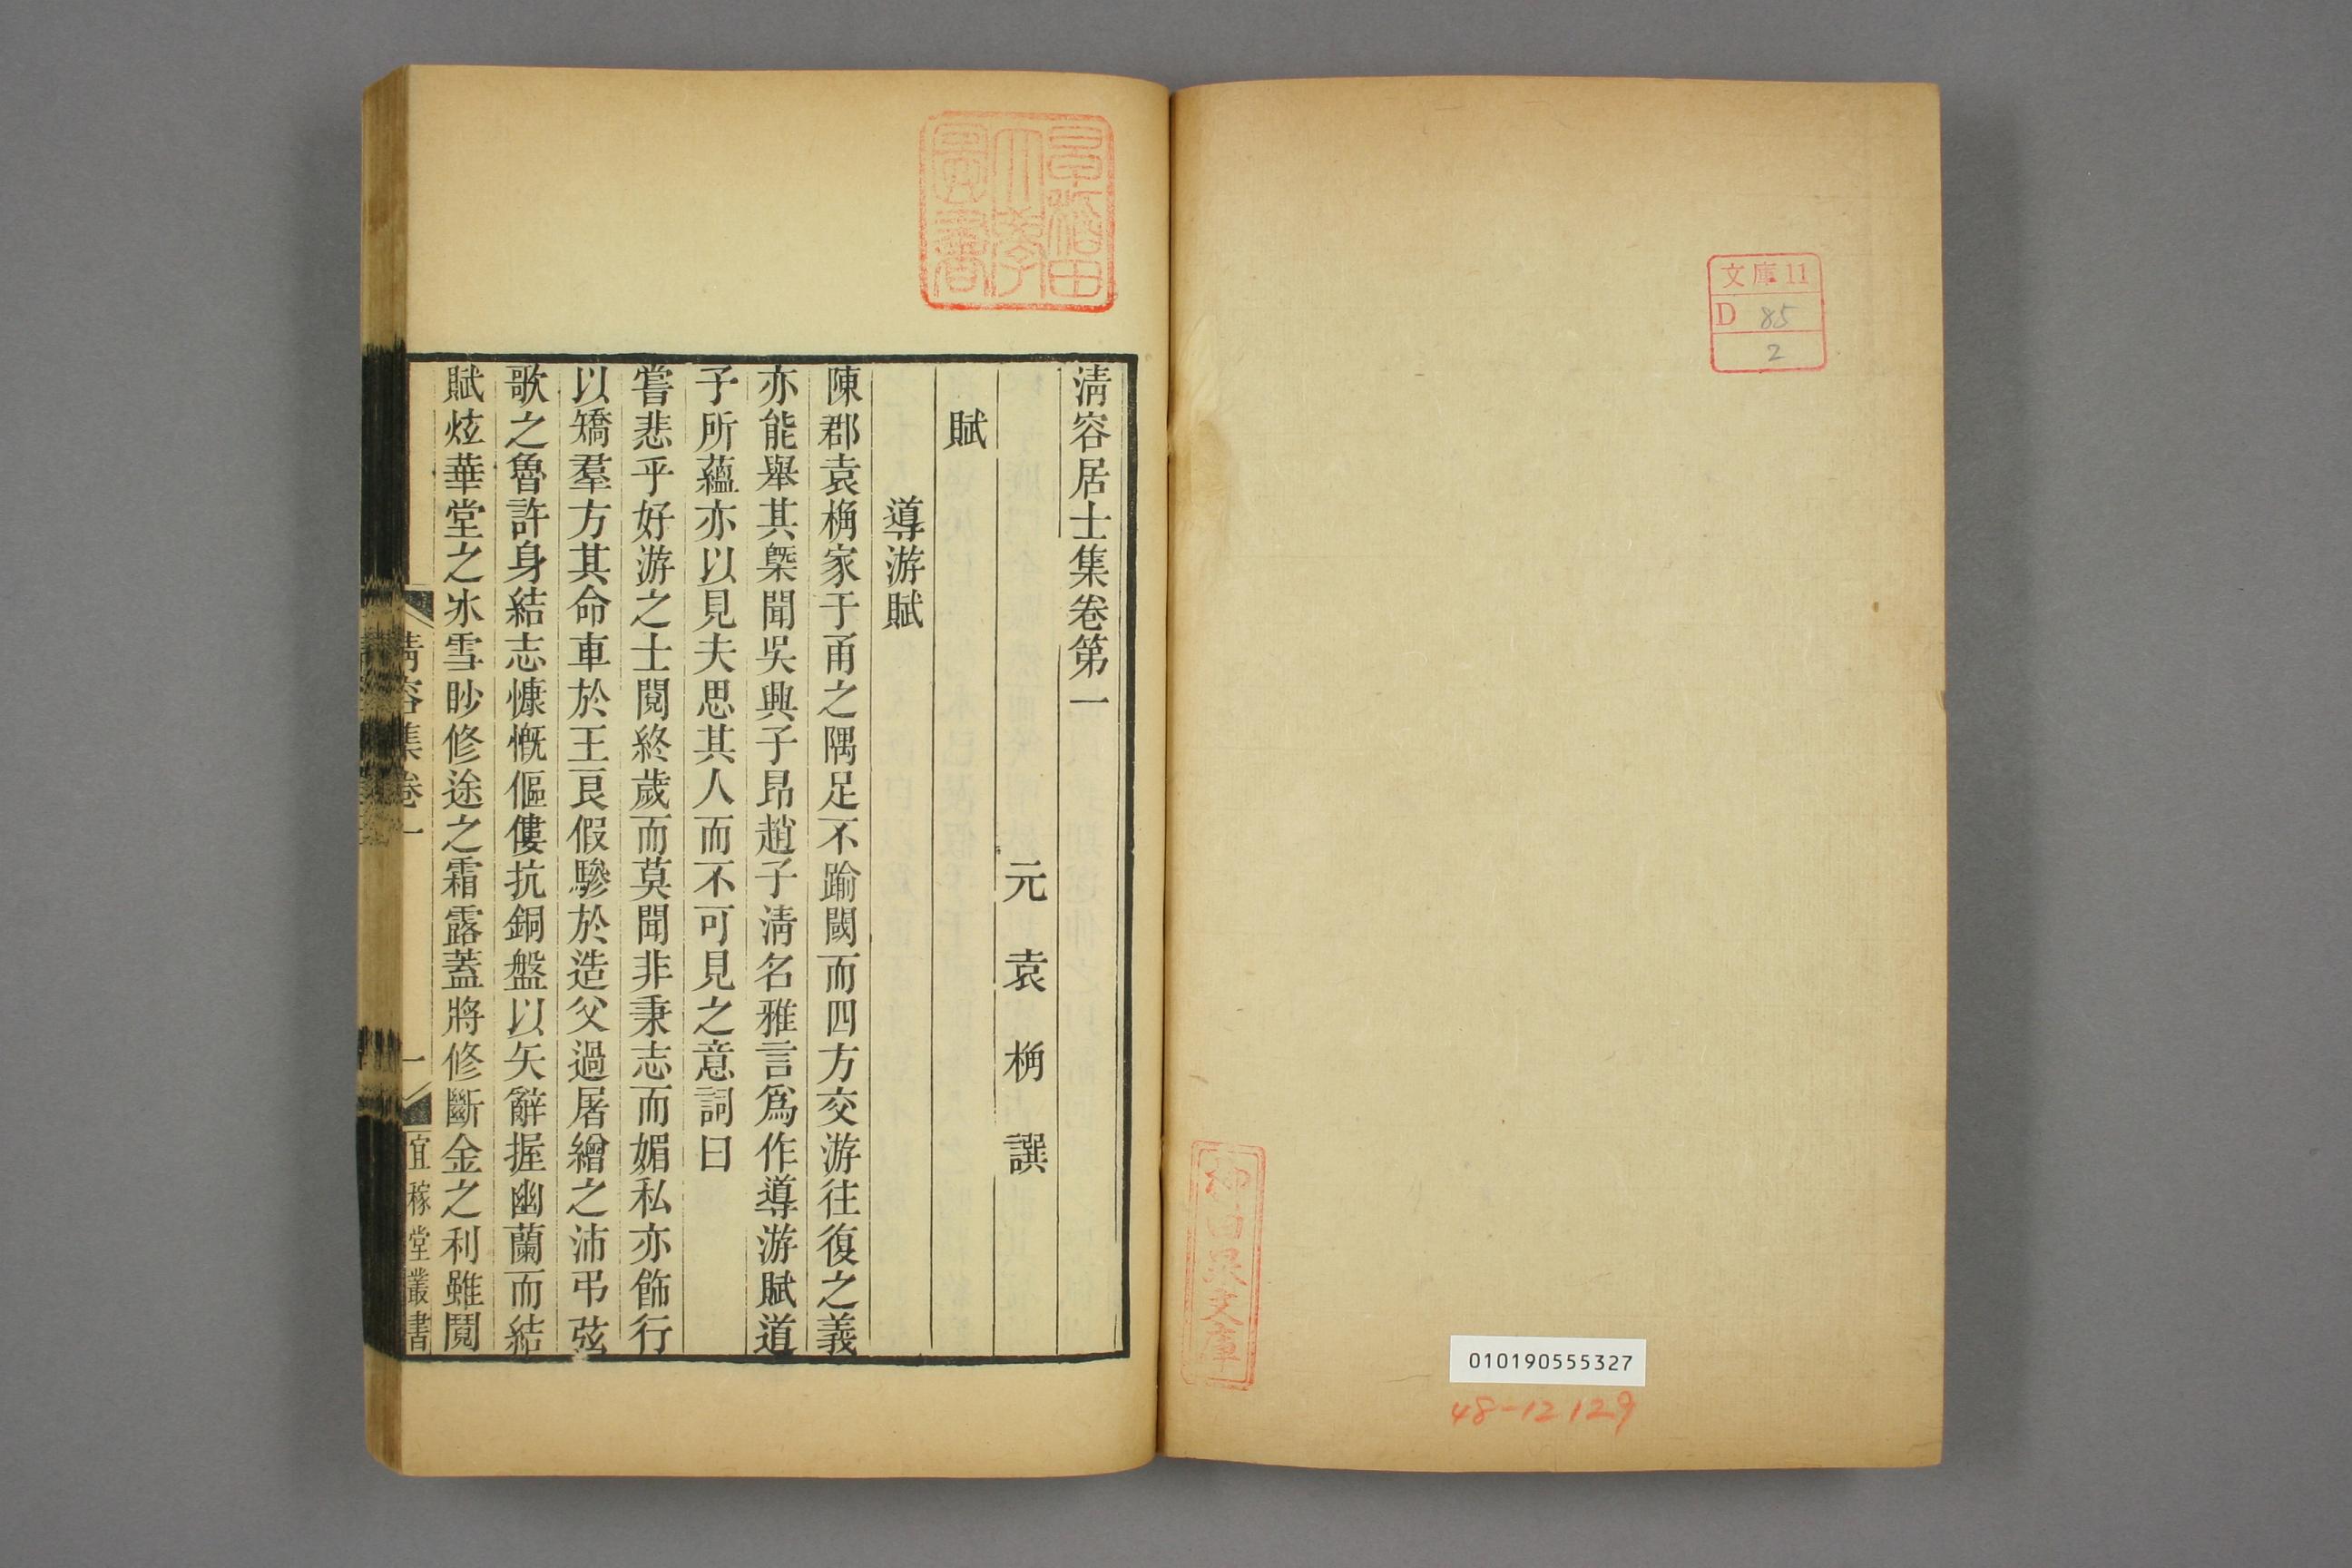 文庫11
D 85
2
柳田泉文庫
010190555327
48-12129
早稲田
大学
図書
清容居士集卷第一
元袁桷譔
賦
導游賦
陳郡袁桷家于甬之隅足不踰閾而四方交游往復之義
亦能舉其槩聞吳興子昂趙子淸名雅言爲作導游賦道
子所蘊亦以見夫思其人而不可見之意詞曰
嘗悲乎好游之士閱終歲而莫聞非秉志而媚私亦飾行
以矯羣方其命車於王良假驂於造父過屠繒之沛弔弦
歌之魯許身結志慷慨傴僂抗銅盤以矢辭握幽蘭而結
賦炫華堂之氷雪眇修途之霜露蓋將修斷金之利雖䦧
清容集卷一
一
宜稼堂叢書